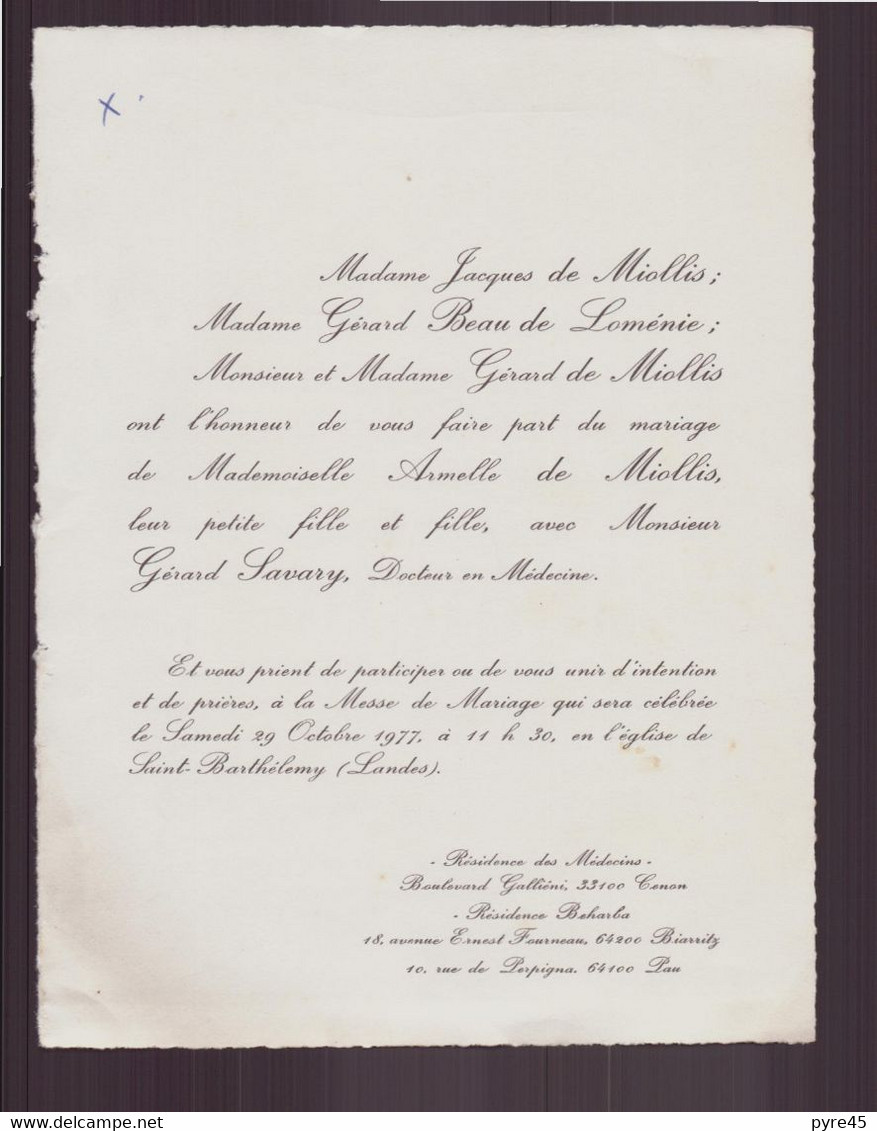 x
Madame Jacques de Miollis ;
Madame Gérard Beau de Loménie ;
Monsieur et Madame Gérard de Miollis
ont l'honneur de vous faire part du mariage
de Mademoiselle Armelle de Miollis,
leur petite fille et fille, avec Monsieur
Gérard Savary, Docteur en Médecine.
Et vous prient de participer ou de vous unir d'intention
et de prières, à la Messe de Mariage qui sera célébrée
le Samedi 29 Octobre 1977, à 11 h 30, en l'église de
Saint-Barthélemy (Landes).
- Résidence des Médecins -
Boulevard Galliéni, 33100 Cenon
- Résidence Beharba
18, avenue Ernest Fourneau, 64200 Biarritz
10, rue de Perpigna. 64100 Pau
www.delcampe.net
pyre45